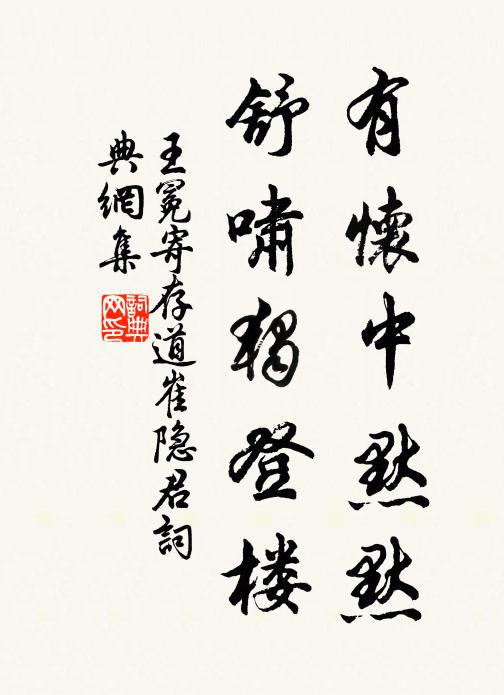 有懷中默默
舒嘯獨登楼
王冕寄存道崔隐君詞
典網集
詞典网印